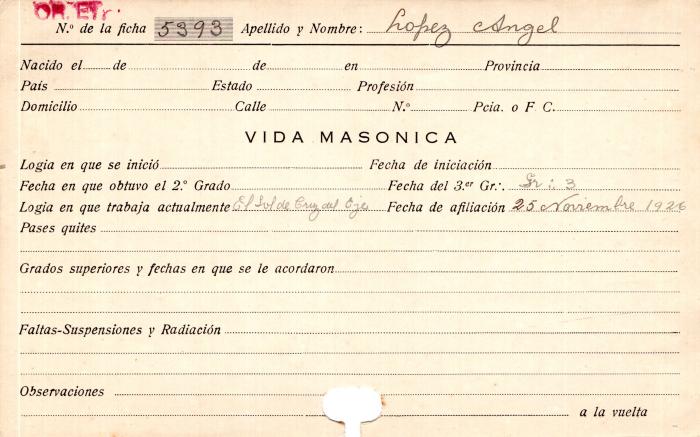 OR. ETr.
N.º de la ficha 5393 Apellido y Nombre: Lopez Angel
Nacido el de de en Provincia
País Estado Profesión
Domicilio Calle N.º Pcia. o F C.
VIDA MASONICA
Logia en que se inició Fecha de iniciación
Fecha en que obtuvo el 2.º Grado Fecha del 3.er Gr∴ Gr∴ 3
Logia en que trabaja actualmente El Sol de Cruz del Eje Fecha de afiliación 25 Noviembre 1926
Pases quites
Grados superiores y fechas en que se le acordaron
Faltas-Suspensiones y Radiación
Observaciones
a la vuelta